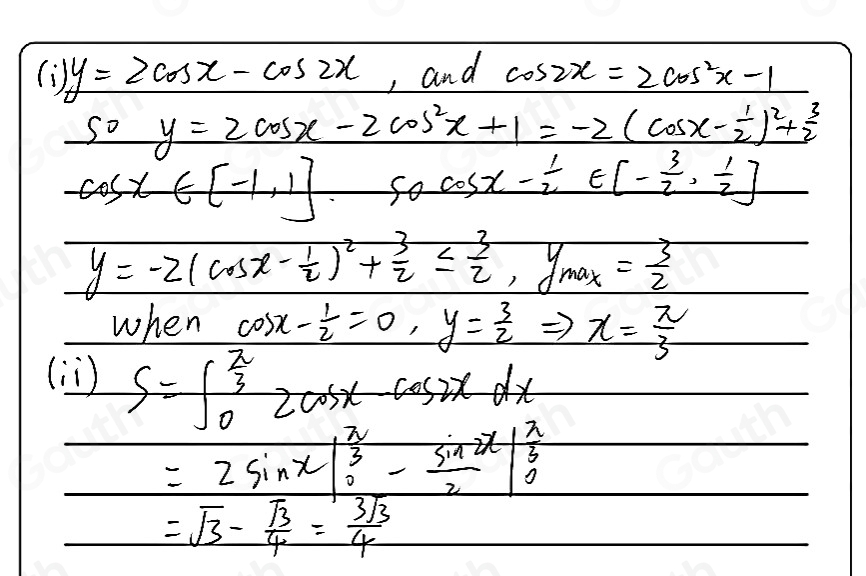 (i) y = 2cosx - cos2x , and cos2x = 2cos²x - 1
so y = 2cosx - 2cos²x + 1 = -2(cosx - 1/2)² + 3/2
cosx ∈ [-1, 1]. so cosx - 1/2 ∈ [-3/2, 1/2]
y = -2(cosx - 1/2)² + 3/2 ≤ 3/2, y_max = 3/2
when cosx - 1/2 = 0, y = 3/2 ⇒ x = π/3
(ii) S = ∫₀^(π/3) 2cosx - cos2x dx
= 2sinx |₀^(π/3) - sin2x/2 |₀^(π/3)
= √3 - √3/4 = 3√3/4